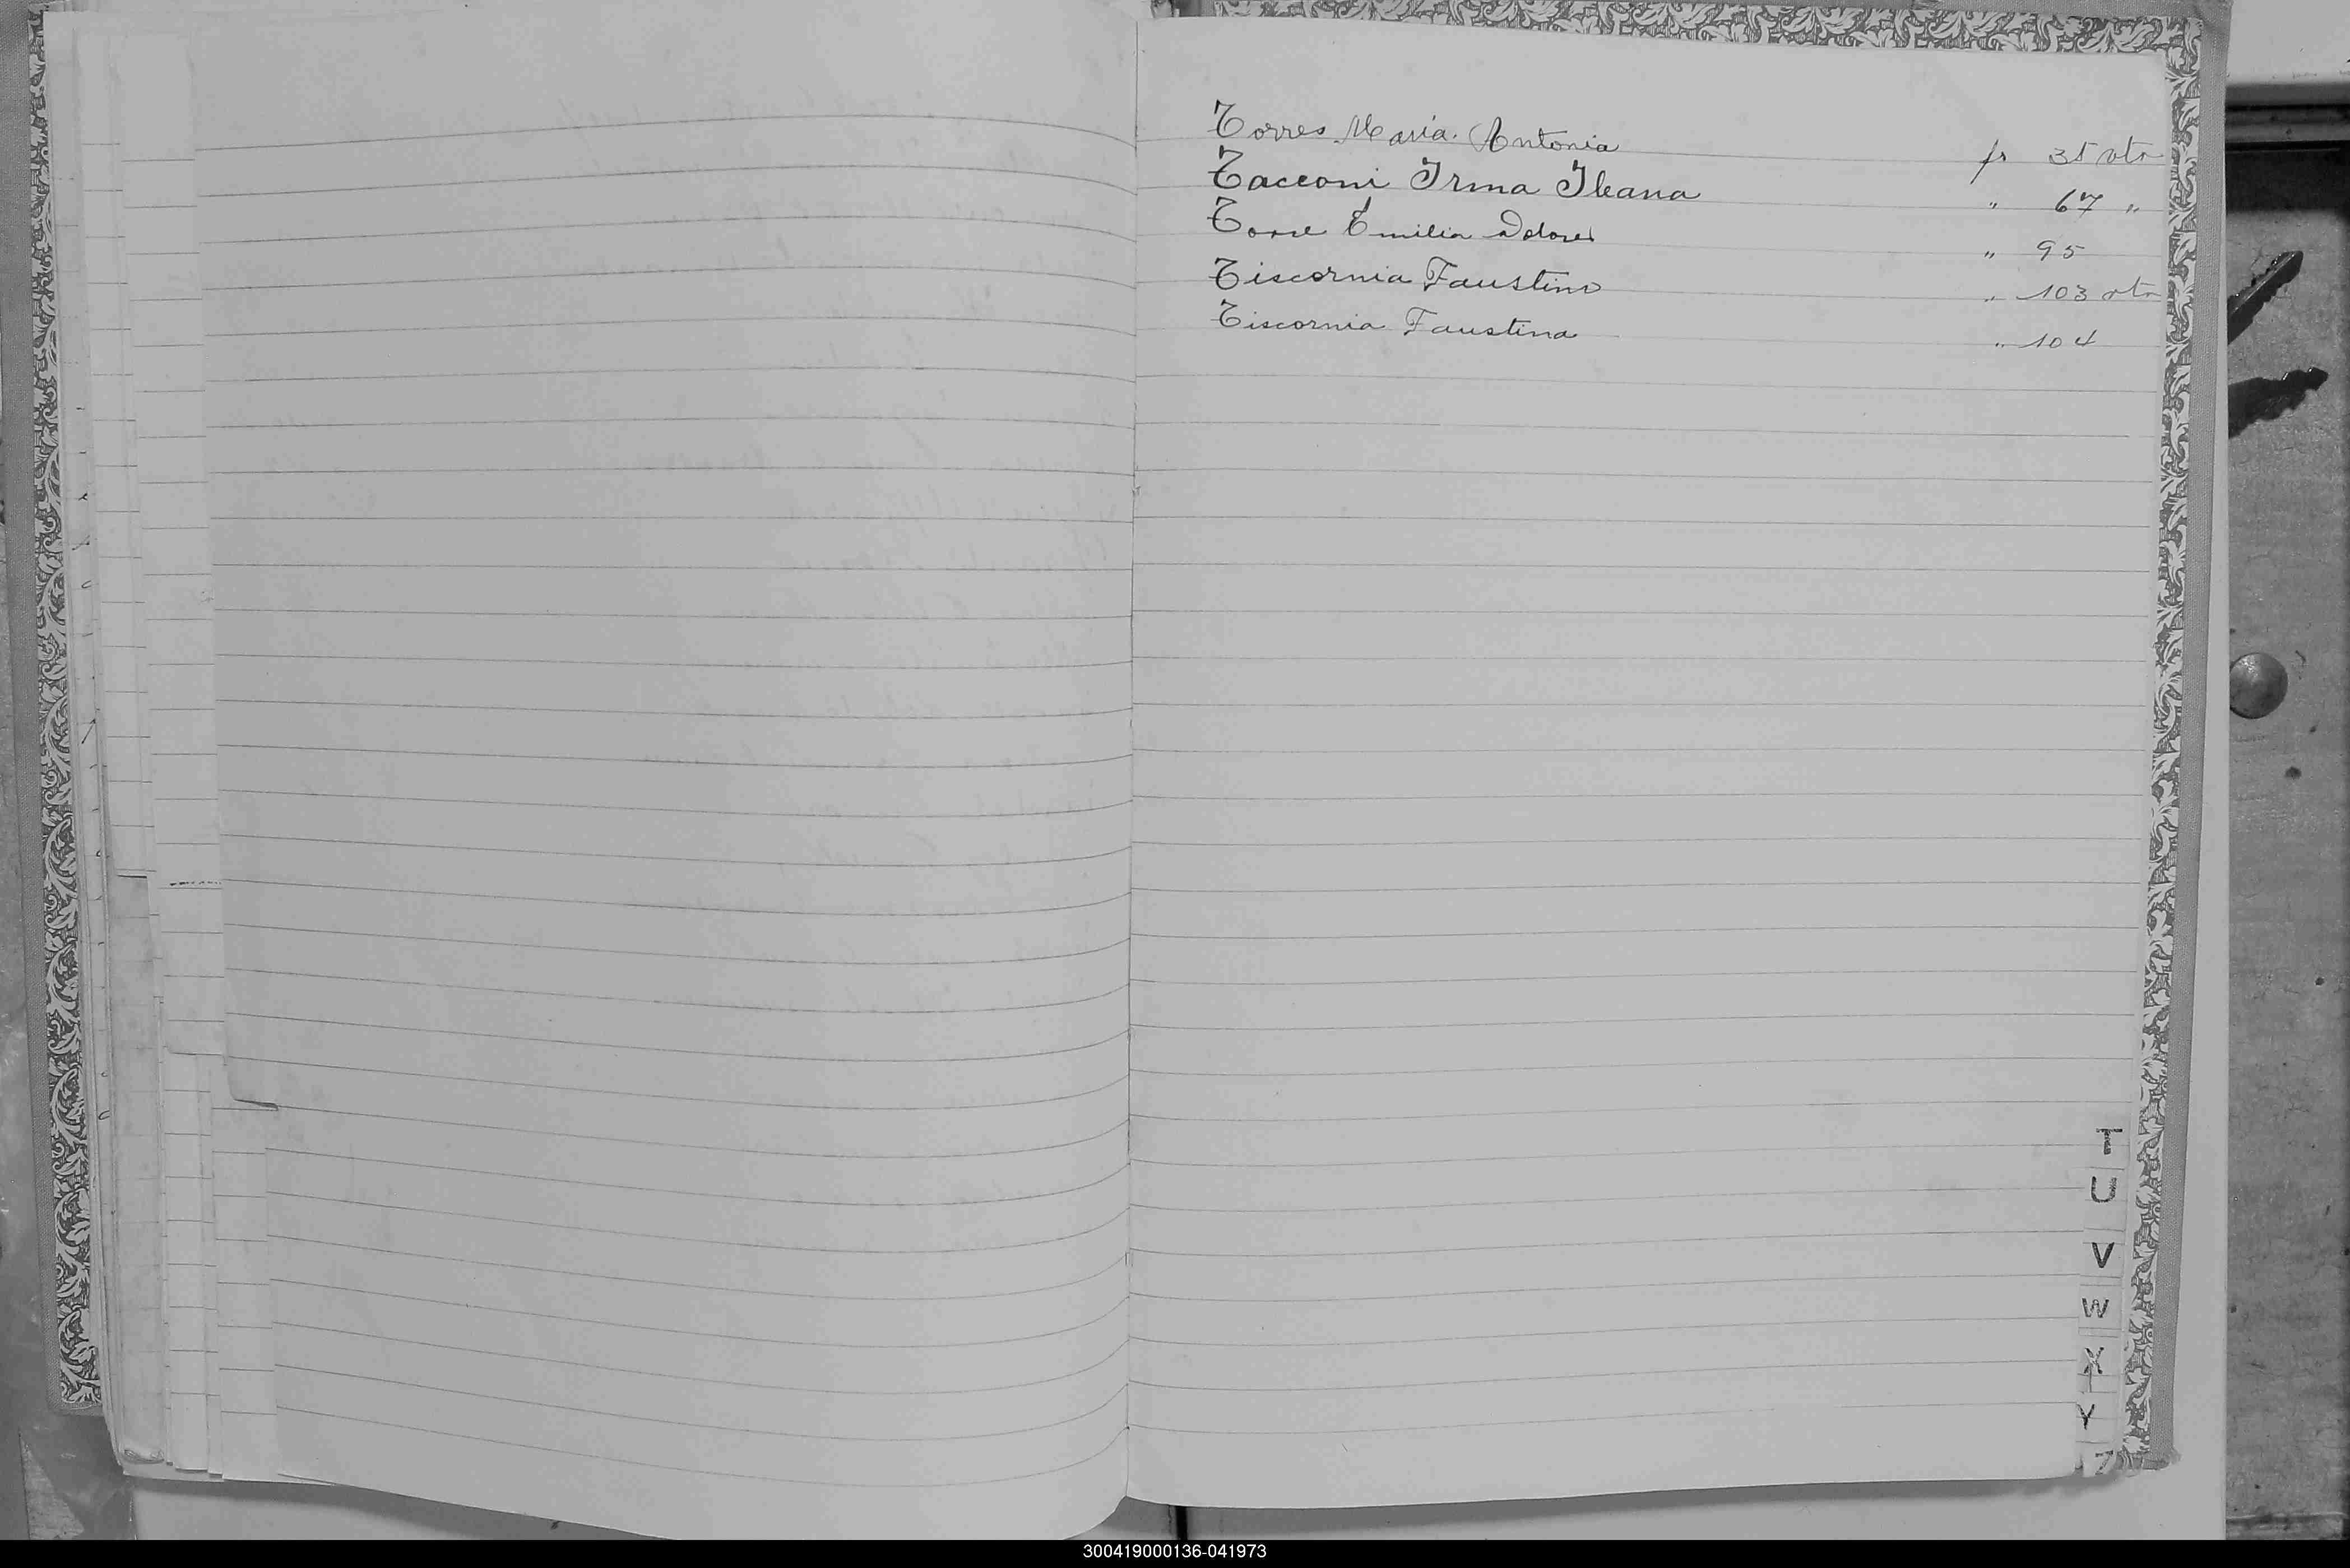 Torres María Antonia fs 35 vto
Tacconi Irma Ileana " 67 "
Torre Emilia Dolores " 95
Tiscornia Faustino " 103 vto
Tiscornia Faustina " 104
T
U
V
W
X
Y
Z
300419000136-041973